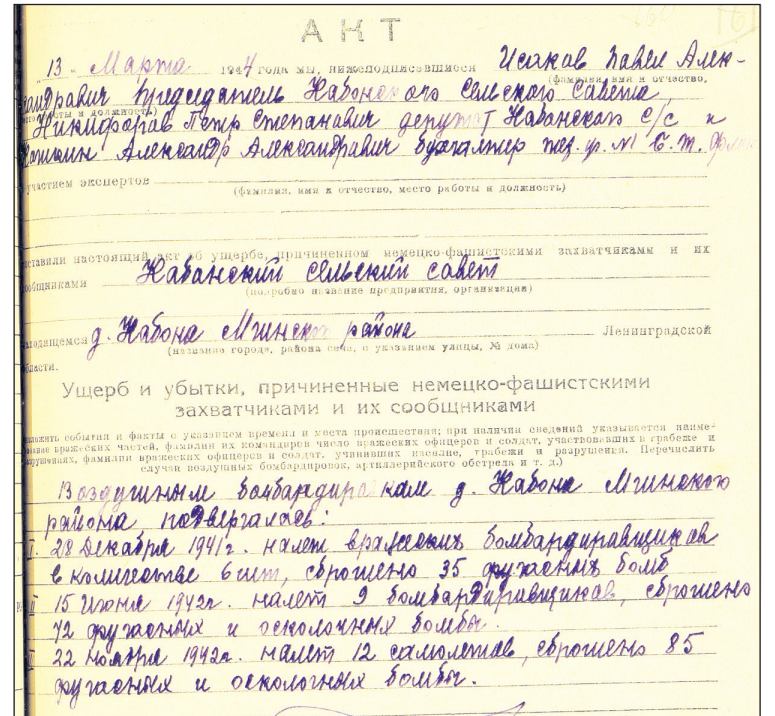 АКТ
"13" Марта 1944 года мы, нижеподписавшиеся Исаков Павел Алек-
(фамилия, имя и отчество,
сандравич председатель Кабонского Сельского Совета,
работы и должность)
Никифорав Петр Степанавич депутат Кабанского с/с и
Александр Александравич бухгалтер
участием экспертов
(фамилия, имя и отчество, место работы и должность)
составили настоящий акт об ущербе, причиненном немецко-фашистскими захватчиками и их
сообщниками Кабанский сельский савет
(подробно название предприятия, организации)
находящемся д. Кабона Мгинского района Ленинградской
(название города, района села, с указанием улицы, № дома)
области.
Ущерб и убытки, причиненные немецко-фашистскими
захватчиками и их сообщниками
(изложить события и факты с указанием времени и места происшествия; при наличии сведений указывается наиме-
нование вражеских частей, фамилии их командиров число вражеских офицеров и солдат, участвовавших в грабеже и
разрушениях, фамилии вражеских офицеров и солдат, учинивших насилие, грабежи и разрушения. Перечислить
случаи воздушных бомбардировок, артиллерийского обстрела и т. д.)
Воздушным бомбардировкам д. Кабона Мгинского
района, подвергалась:
I. 28 Декабря 1941г. налет вражеских бомбардиравщиков
в количестве 6 шт, сброшено 35 фугасных бомб
II 15 Июня 1942г. налет 9 бомбардиравщиков, сброшено
72 фугасных и осколочных бомбы.
22 ноября 1942г. налет 12 самолетав, сброшено 85
фугасных и осколочных бомбы.